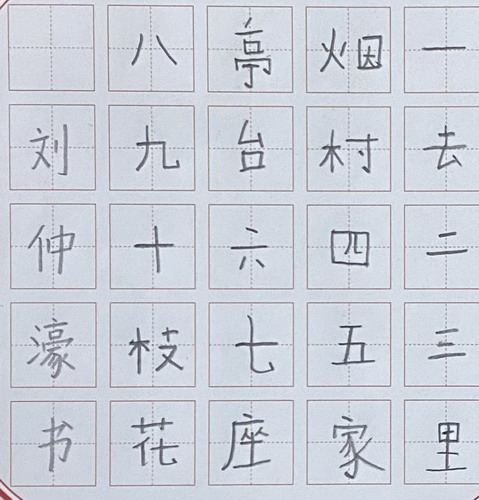 一去二三里
烟村四五家
亭台六七座
八九十枝花
刘仲濠书